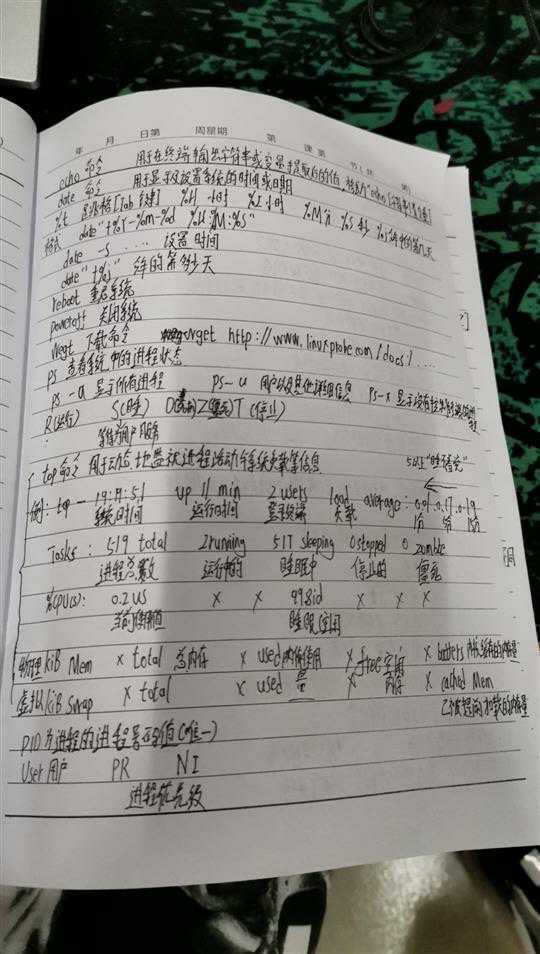 年 月 日第 周星期 第 课第 节(共 时)
echo 命令 用于在终端输出字符串或变量提取后的值,格式为"echo [字符串|变量]
date 命令 用于显示及设置系统的时间或日期
%t 跳格[Tab键] %H 小时 %I 小时 %M 分 %S 秒 %j 今年中的第几天
格式 date "+%Y-%m-%d %H:%M:%S"
date -s .... 设置时间
date "+%j" 今年的第多少天
reboot 重启系统
poweroff 关闭系统
wget 下载命令 wget http://www.linuxprobe.com/docs/...
ps 查看系统中的进程状态
ps -a 显示所有进程 ps-u 用户以及其他详细信息 ps-x 显示没有控制终端的进程
R(运行) S(中断) D(不可中断) Z(僵死) T(停止)
top命令 用于动态地监视进程活动与系统负载等信息
例: top - 19:17:51 up 11 min 2 users load average: 0.01, 0.17, 0.19
系统时间 运行时间 登录终端 负载 1分 5分 15分
Tasks: 519 total 2 running 517 sleeping 0 stopped 0 zombie
进程总数 运行中的 睡眠中 停止的 僵死
%CPU(s): 0.2 us × × 99.8id × × ×
物理 KiB Mem × total 总内存 × used 内存使用 × free 空闲 × buffers
虚拟 KiB Swap × total × used 量 × 内存 × cached Mem
PID为进程的进程号码值(唯一)
User 用户 PR NI
进程优先级